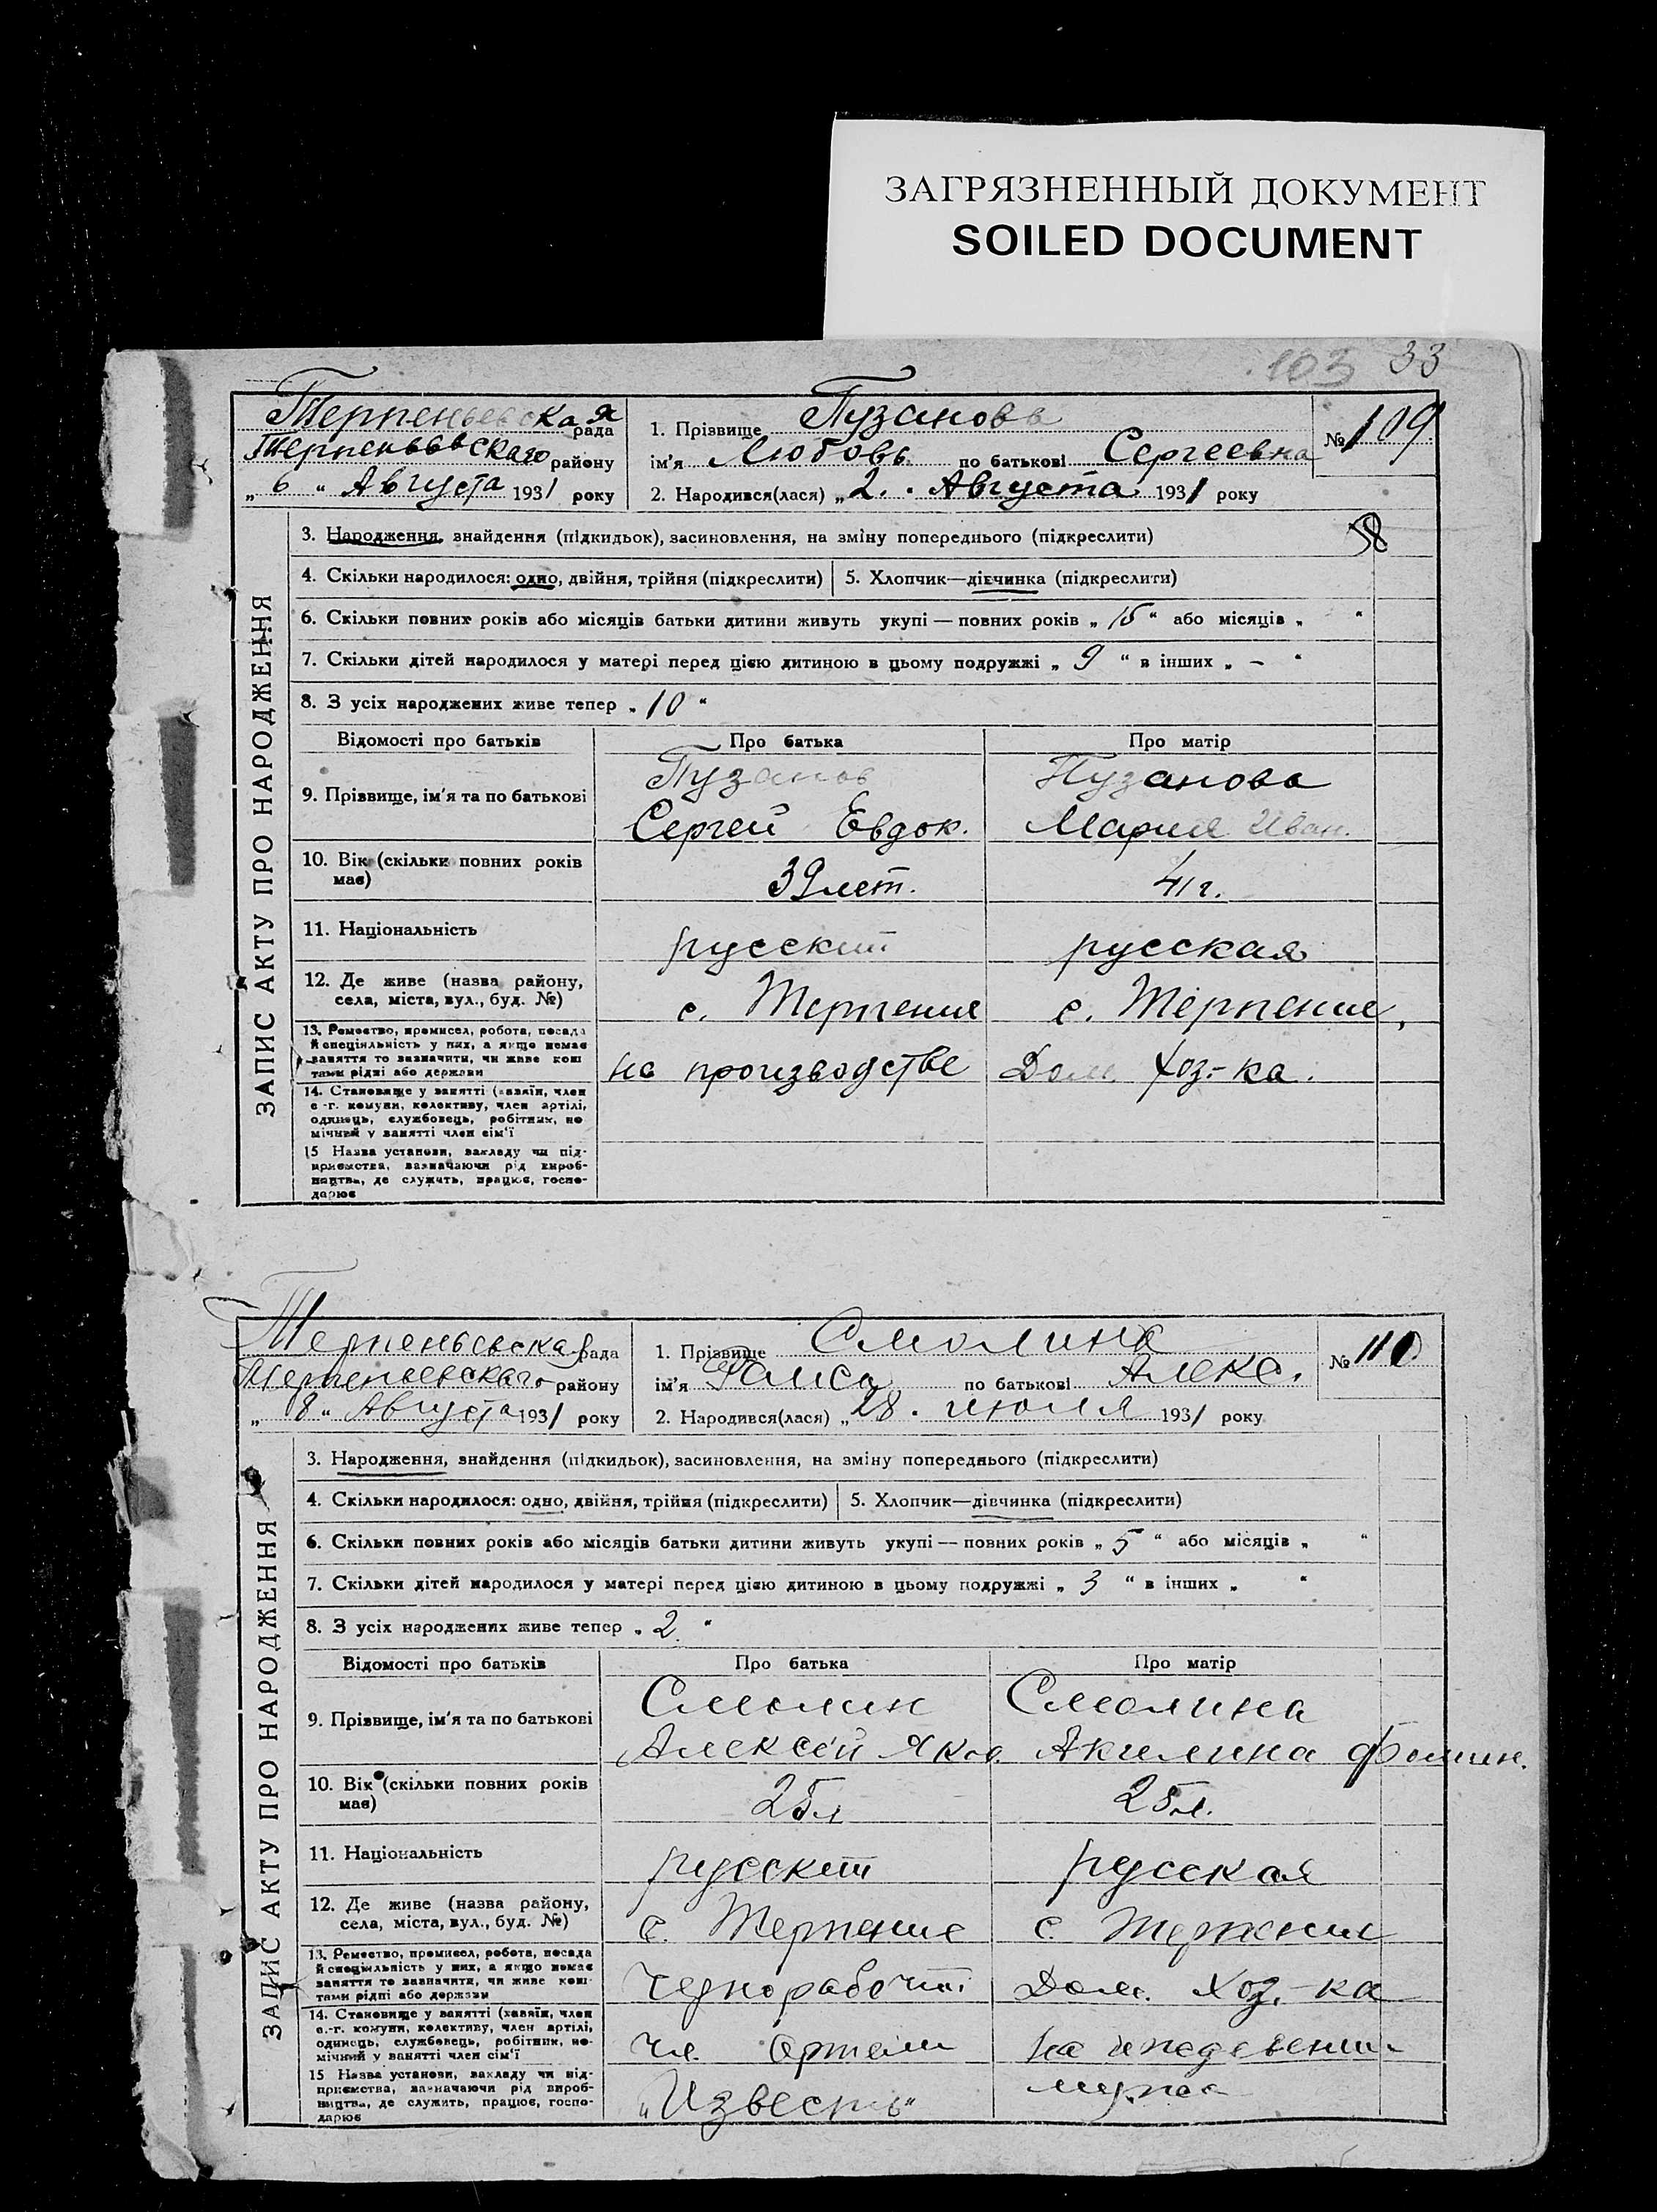 ЗАГРЯЗНЕННЫЙ ДОКУМЕНТ
SOILED DOCUMENT
103 33
Терпеньевская рада
Терпеньевского району
„ 6 “ Августа 1931 року
1. Прізвище Пузанова
ім'я Любовь по батькові Сергеевна
2. Народився(лася) „ 2. “ Августа 1931 року
№ 109
58
ЗАПИС АКТУ ПРО НАРОДЖЕННЯ
3. Народження, знайдення (підкидьок), засиновлення, на зміну попереднього (підкреслити)
4. Скільки народилося: одно, двійня, трійня (підкреслити) 5. Хлопчик—дівчинка (підкреслити)
6. Скільки повних років або місяців батьки дитини живуть укупі — повних років „ 15 “ або місяців „ “
7. Скільки дітей народилося у матері перед цією дитиною в цьому подружжі „ 9 “ в інших „ - “
8. З усіх народжених живе тепер „ 10 “
Відомості про батьків Про батька Про матір
9. Прізвище, ім'я та по батькові
Пузанов Пузанова
Сергей Евдок. Мария Иван.
10. Вік (скільки повних років має)
39 лет. 41 г.
11. Національність
русский русская
12. Де живе (назва району, села, міста, вул., буд. №)
с. Терпения с. Терпение,
13. Ремество, промисел, робота, посада й спеціяльність у них, а якщо немає заняття то зазначити, чи живе коштами рідні або держави
на производстве Дом. хоз.-ка.
14. Становище у занятті (хазяїн, член с.-г. комуни, колективу, член артілі, одинець, службовець, робітник, помічний у занятті член сім'ї
15 Назва установи, закладу чи підприємства, зазначаючи рід виробництва, де служить, працює, господарює
Терпеньевская рада
Терпеньевского району
„ 8 “ Августа 1931 року
1. Прізвище Смолина
ім'я Раиса по батькові Алекс.
2. Народився(лася) „ 28 . июля 1931 року
№ 110
ЗАПИС АКТУ ПРО НАРОДЖЕННЯ
3. Народження, знайдення (підкидьок), засиновлення, на зміну попереднього (підкреслити)
4. Скільки народилося: одно, двійня, трійня (підкреслити) 5. Хлопчик—дівчинка (підкреслити)
6. Скільки повних років або місяців батьки дитини живуть укупі — повних років „ 5 “ або місяців „ “
7. Скільки дітей народилося у матері перед цією дитиною в цьому подружжі „ 3 “ в інших „ “
8. З усіх народжених живе тепер „ 2 “
Відомості про батьків Про батька Про матір
9. Прізвище, ім'я та по батькові
Смолин Смолина
Алексей Яков. Акилина Фомин.
10. Вік (скільки повних років має)
25 л 25 л.
11. Національність
русский русская
12. Де живе (назва району, села, міста, вул., буд. №)
с. Терпение с. Терпения
13. Ремество, промисел, робота, посада й спеціяльність у них, а якщо немає заняття то зазначити, чи живе коштами рідні або держави
Чернорабочий Дом. Хоз.-ка
14. Становище у занятті (хазяїн, член с.-г. комуни, колективу, член артілі, одинець, службовець, робітник, помічний у занятті член сім'ї
Чл. Артели на иждевении
15 Назва установи, закладу чи підприємства, зазначаючи рід виробництва, де служить, працює, господарює
„Известь“ мужа